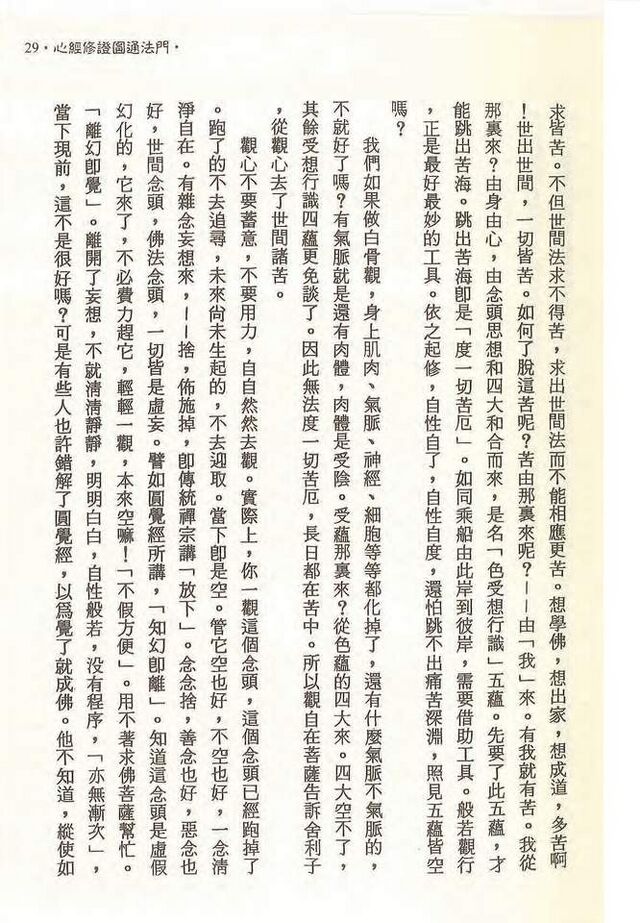 29·心經修證圓通法門·
求皆苦。不但世間法求不得苦，求出世間法而不能相應更苦。想學佛，想出家，想成道，多苦啊
！世出世間，一切皆苦。如何了脫這苦呢？苦由那裏來呢？——由「我」來。有我就有苦。我從
那裏來？由身由心，由念頭思想和四大和合而來，是名「色受想行識」五蘊。先要了此五蘊，才
能跳出苦海。跳出苦海卽是「度一切苦厄」。如同乘船由此岸到彼岸，需要借助工具。般若觀行
，正是最好最妙的工具。依之起修，自性自了，自性自度，還怕跳不出痛苦深淵，照見五蘊皆空
嗎？
我們如果做白骨觀，身上肌肉、氣脈、神經、細胞等等都化掉了，還有什麼氣脈不氣脈的，
不就好了嗎？有氣脈就是還有肉體，肉體是受陰。受蘊那裏來？從色蘊的四大來。四大空不了，
其餘受想行識四蘊更免談了。因此無法度一切苦厄，長日都在苦中。所以觀自在菩薩告訴舍利子
，從觀心去了世間諸苦。
觀心不要蓄意，不要用力，自自然然去觀。實際上，你一觀這個念頭，這個念頭已經跑掉了
。跑了的不去追尋，未來尚未生起的，不去迎取。當下卽是空。管它空也好，不空也好，一念清
淨自在。有雜念妄想來，——捨，佈施掉，卽傳統禪宗講「放下」。念念捨，善念也好，惡念也
好，世間念頭，佛法念頭，一切皆是虛妄。譬如圓覺經所講，「知幻卽離」。知道這念頭是虛假
幻化的，它來了，不必費力趕它，輕輕一觀，本來空嘛！「不假方便」。用不著求佛菩薩幫忙。
「離幻卽覺」。離開了妄想，不就清清靜靜，明明白白，自性般若，沒有程序，「亦無漸次」，
當下現前，這不是很好嗎？可是有些人也許錯解了圓覺經，以爲覺了就成佛。他不知道，縱使如